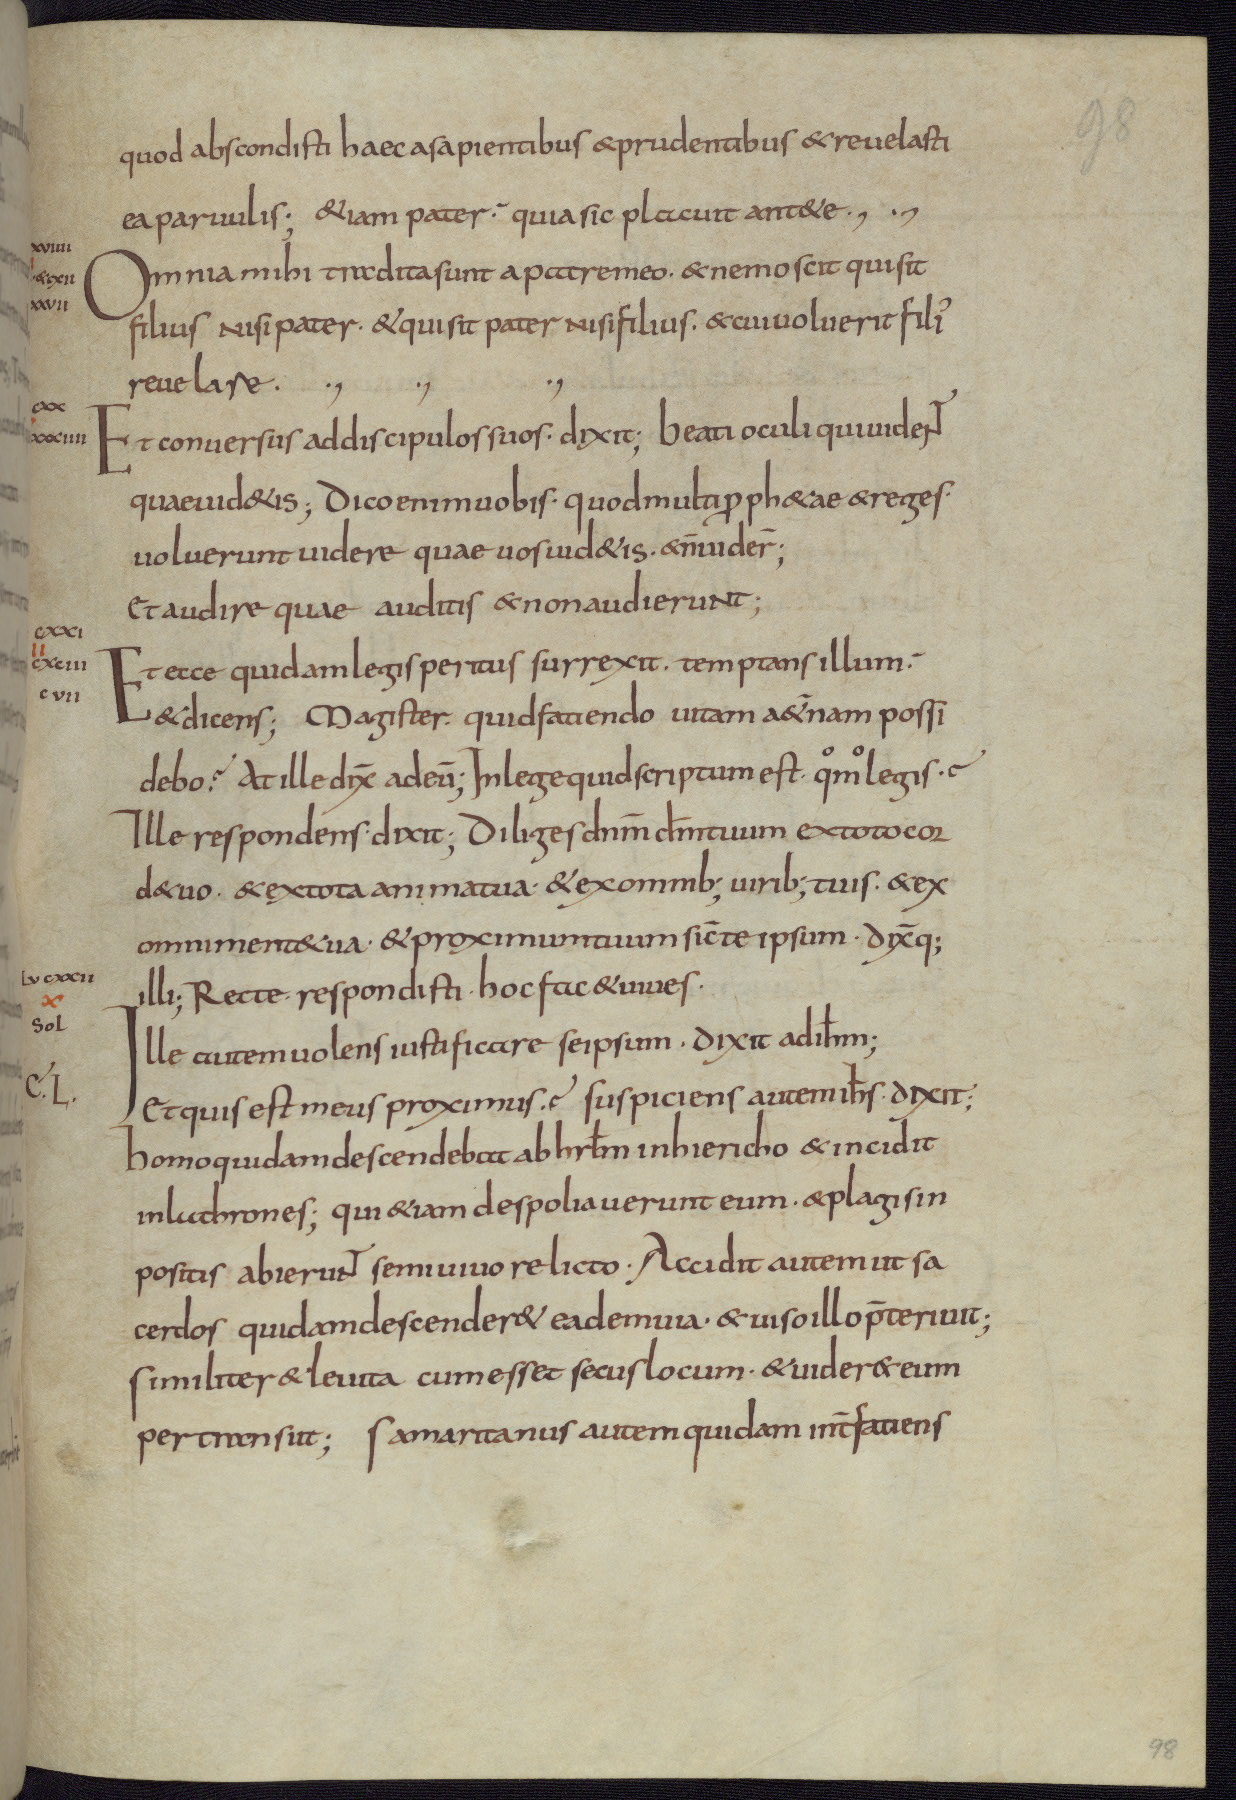 98
quod abscondisti haec a sapientibus & prudentibus & reuelasti
ea paruulis; &iam pater· quia sic placuit ant& e ., .,
xviiii
cxix
xxvii
Omnia mihi tradita sunt a patre meo· & nemo scit qui sit
filius nisi pater· & qui sit pater nisi filius· & cui uoluerit fili'
reuelare· ., ., .,
cxx
xxxiiii
Et conuersus ad discipulos suos· dixit; beati oculi qui uident
quae uid&is; Dico enim uobis· quod multi pph&ae & reges·
uoluerunt uidere quae uos uid&is· & n̄ uider̄;
Et audire quae auditis & non audierunt;
cxxi
ii
cxciii
cvii
Et ecce quidam legis peritus surrexit· temptans illum·
& dicens; Magister· quid faciendo uitam a&̄nam possi
debo? At ille dix̄ ad eū; In lege quid scriptum est· qᵒmᵒ legis?
Ille respondens· dixit; Diliges dn̄m dm̄ tuum ex toto cor
d& uo· & ex tota anima tua· & ex omnib; uirib; tuis· & ex
omni ment& ua· & proximum tuum sic̄ te ipsum· dix̄q;
illi; Recte respondisti· hoc fac & uiues·
Lv cxxii
x
Sol
Ille autem uolens iustificare se ipsum· dixit ad ih̄m;
C. L.
Et quis est meus proximus? suspiciens autem ih̄s· dixit;
homo quidam descendebat ab hrl̄m in hiericho & incidit
in lathrones; qui &iam despoliauerunt eum· & plagis in
positis abierunt semiuiuo relicto· Accidit autem ut sa
cerdos quidam descender& eadem uia· & uiso illo p̄teriuit;
similiter & leuita cum esset secus locum· & uider& eum
pertransiit; Samaritanus autem quidam int̄ faciens
98